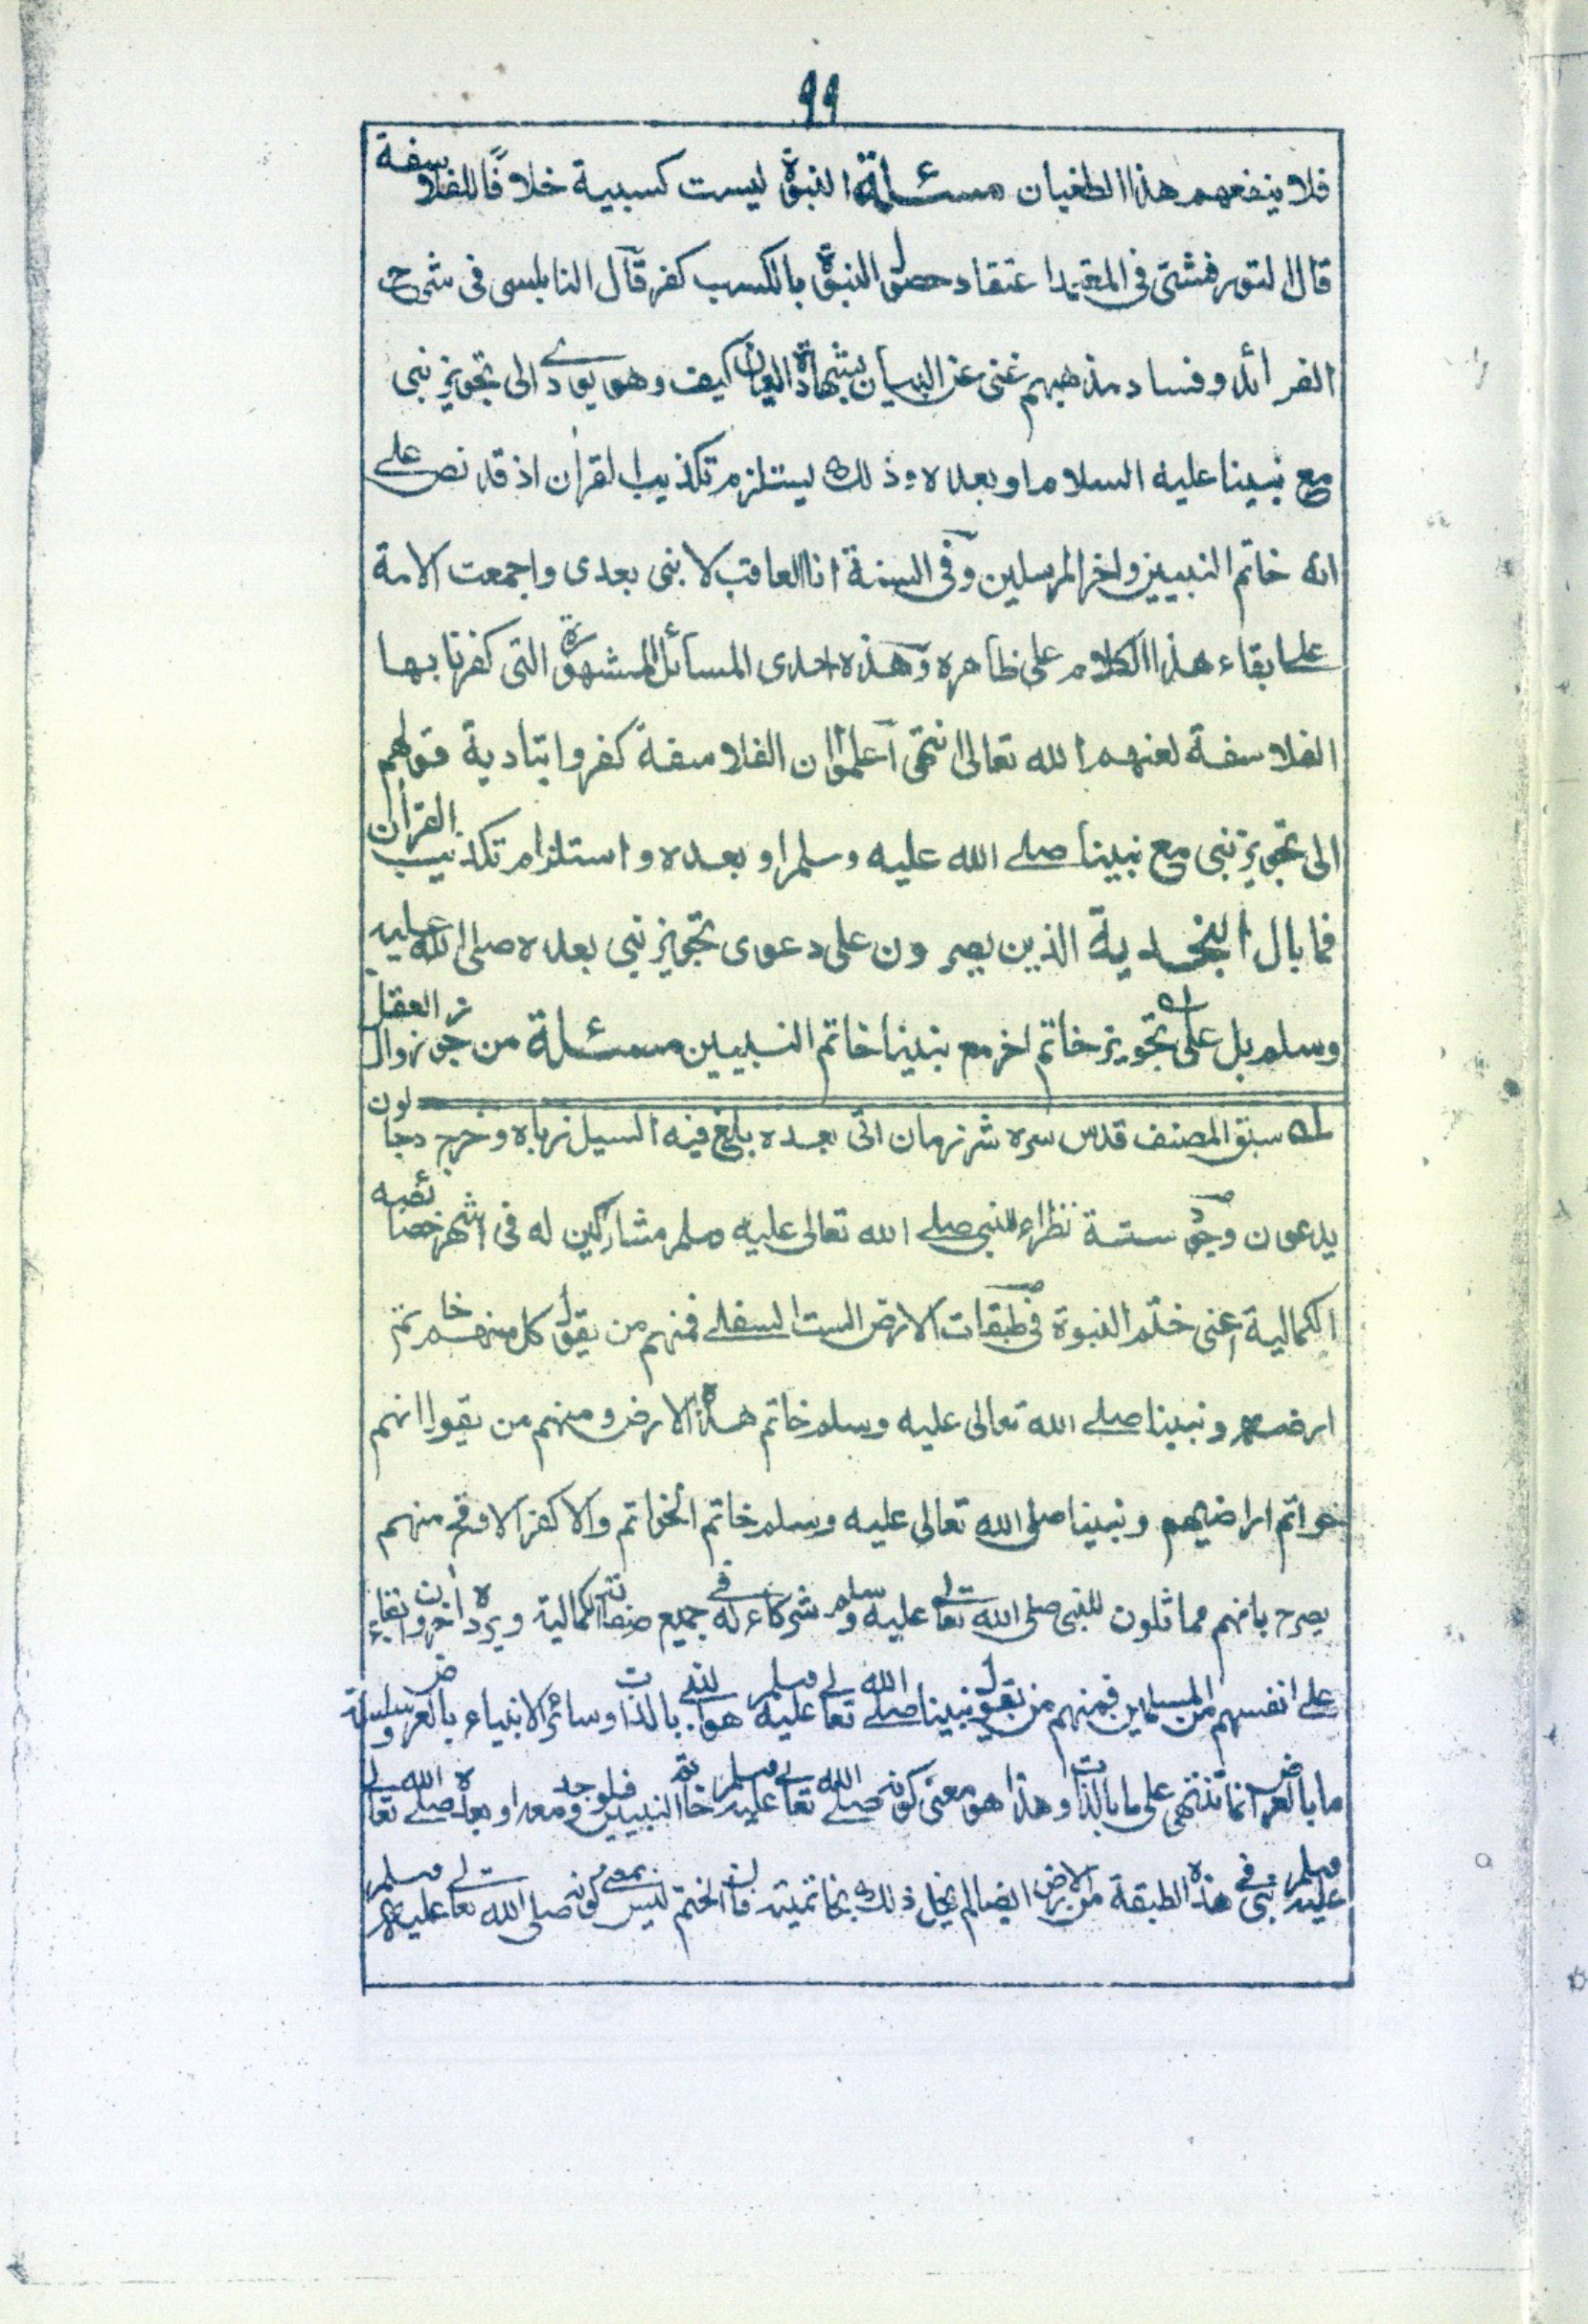 ٩٩
فلا ينفعهم هذا الطغيان مسئلة النبوة ليست كسبية خلافًا للفلاسفة
قال التورفشتي في المعتمد اعتقاد حصول النبوة بالكسب كفر قال النابلسي في شرح
الفرائد وفساد مذهبهم غنى عن البيان بشهادة العيان كيف وهو يودي الى تجويز نبى
مع نبينا عليه السلام او بعده وذلك يستلزم تكذيب القرآن اذ قد نص على
انه خاتم النبيين واخر المرسلين وفى السنة انا العاقب لا نبى بعدى واجمعت الامة
على ابقاء هذا الكلام على ظاهره وهذه احدى المسائل المشهورة التى كفرنا بها
الفلاسفة لعنهم الله تعالى انتهى اعلموا ان الفلاسفة كفروا بتادية قولهم
الى تجويز نبى مع نبينا صلى الله عليه وسلم او بعده واستلزام تكذيب القرآن
فما بال النجدية الذين يصرون على دعوى تجويز نبى بعده صلى الله عليه
وسلم بل على تجويز خاتم اخر مع نبينا خاتم النبيين مسئلة من جوز زوال العقل
له سبق المصنف قدس سره شر زمان اتى بعده بلغ فيه السيل زباه وخرج دجالون
يدعون وجود ستة نظراء للنبى صلى الله تعالى عليه وسلم مشاركين له فى اشهر خصائصه
الكمالية اعنى ختم النبوة فى طبقات الارض الست السفلى فمنهم من يقول كل منهم خاتم
ارضه ونبينا صلى الله تعالى عليه وسلم خاتم هذه الارض ومنهم من يقول انهم
خواتم اراضيهم ونبينا صلى الله تعالى عليه وسلم خاتم الخواتم والاكفر الاوقح منهم
يصرح بانهم مماثلون للنبى صلى الله تعالى عليه وسلم شركاء له فى جميع صفاته الكمالية ويرده اخرون ابقاء
على انفسهم من المسلمين فمنهم من يقول نبينا صلى الله تعالى عليه وسلم هو النبى بالذات وسائر الانبياء بالعرض وسلسلة
ما بالعرض انما تنتهى على ما بالذات وهذا هو معنى كونه صلى الله تعالى عليه وسلم خاتم النبيين فلو وجد معه او بعده صلى الله تعالى
عليه وسلم نبى فى هذه الطبقة من الارض ايضا لم يخل ذلك بخاتميته فان الختم ليس بمعنى كونه صلى الله تعالى عليه وسلم